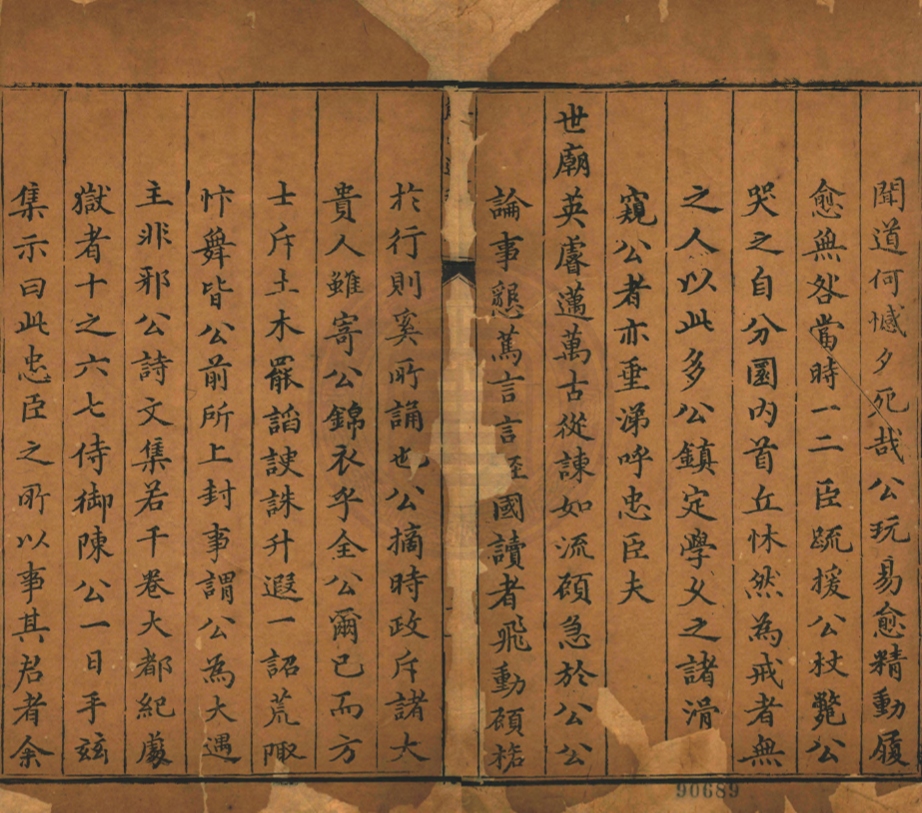 聞道何憾夕死哉公玩易愈精動履
愈無咎當時一二臣疏援公杖斃公
哭之自分圜内首丘怵然為戒者無
之人以此多公鎮定學乂之諸滑
窺公者亦垂涕呼忠臣夫
世廟英睿邁萬古從諫如流碩急於公公
論事懇篤言言經國讀者飛動碩格
於行則奚所誦也公摘時政斥諸大
貴人雖寄公錦衣乎全公爾已而方
士斥土木罷謟諛誅升遐一詔荒陬
忭舞皆公前所上封事謂公為大遇
主非邪公詩文集若干卷大都紀處
獄者十之六七侍御陳公一日手茲
集示曰此忠臣之所以事其君者余
90689